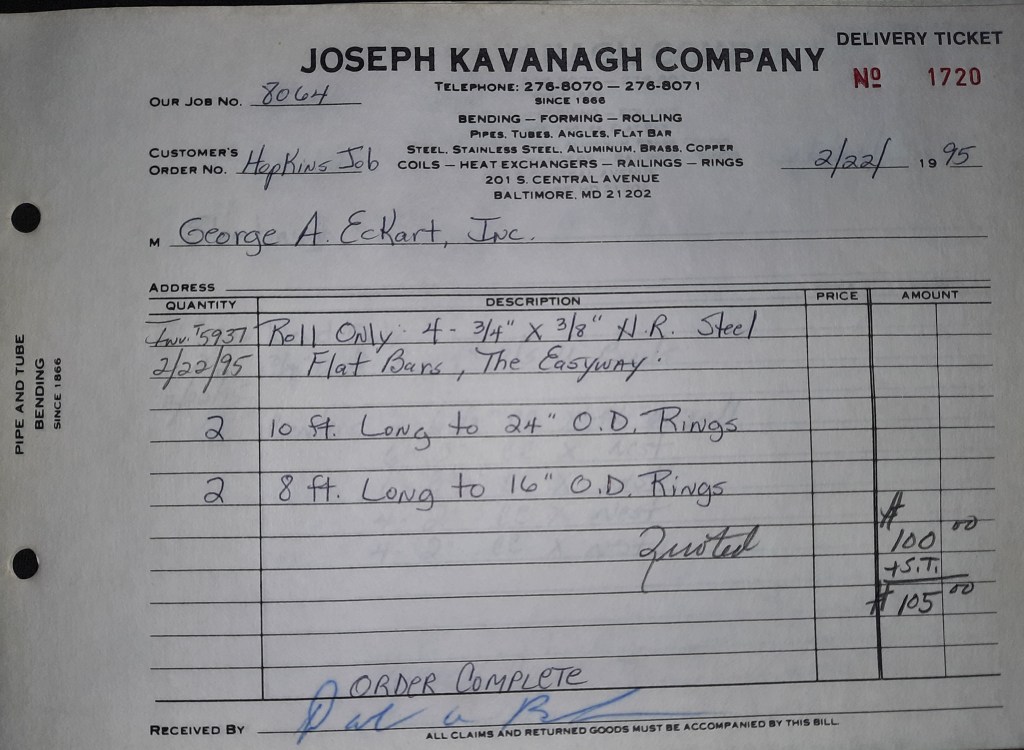 DELIVERY TICKET
JOSEPH KAVANAGH COMPANY
No 1720
TELEPHONE: 276-8070 — 276-8071
SINCE 1866
OUR JOB NO. 8064
BENDING — FORMING — ROLLING
PIPES, TUBES, ANGLES, FLAT BAR
STEEL, STAINLESS STEEL, ALUMINUM, BRASS, COPPER
CUSTOMER'S ORDER NO. Hopkins Job
COILS — HEAT EXCHANGERS — RAILINGS — RINGS
2/22/ 19 95
201 S. CENTRAL AVENUE
BALTIMORE, MD 21202
M George A. Eckart, Inc.
ADDRESS
QUANTITY DESCRIPTION PRICE AMOUNT
Inv. #5937 Roll Only 4 - 3/4" x 3/8" H.R. Steel
2/22/95 Flat Bars, The Easyway.
2 10 ft. Long to 24" O.D. Rings
2 8 ft. Long to 16" O.D. Rings
Quoted $100 00
+S.T.
$105 00
ORDER COMPLETE
RECEIVED BY
ALL CLAIMS AND RETURNED GOODS MUST BE ACCOMPANIED BY THIS BILL.
PIPE AND TUBE
BENDING
SINCE 1866